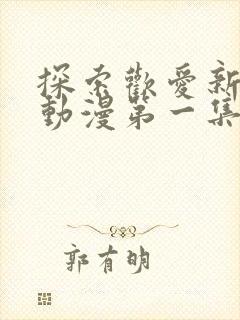 探索歡愛新
動漫第一集
郭有明